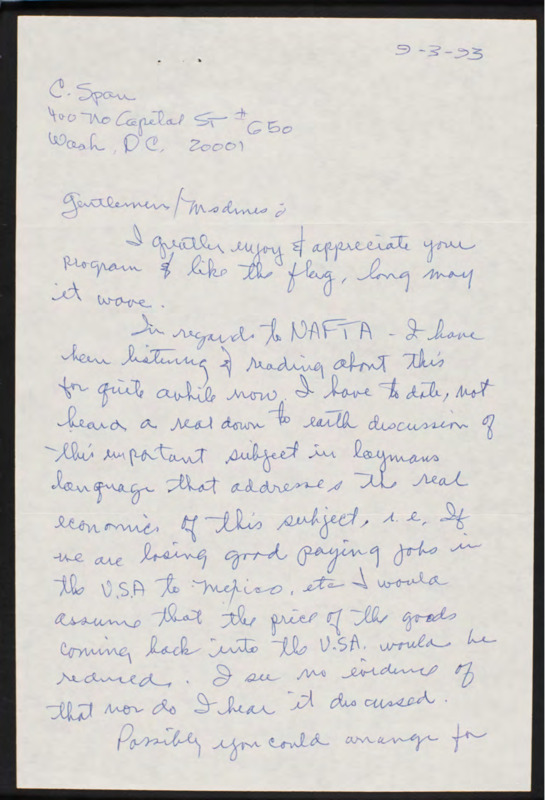 9-3-93
C. Span
400 No Capital ST # 650
Wash, D.C. 20001
Gentlemen/Madmes:
I greatly enjoy & appreciate your
program & like the flag, long may
it wave.
In regards to NAFTA - I have
been listening & reading about this
for quite awhile now, I have to date, not
heard a real down to earth discussion of
this important subject in laymans
language that addresses the real
economics of this subject, i.e. If
we are losing good paying jobs in
the U.S.A to Mexico, etc I would
assume that the price of the goods
coming back into the U.S.A. would be
reduced. I see no evidence of
that nor do I hear it discussed.
Possibly you could arrange for